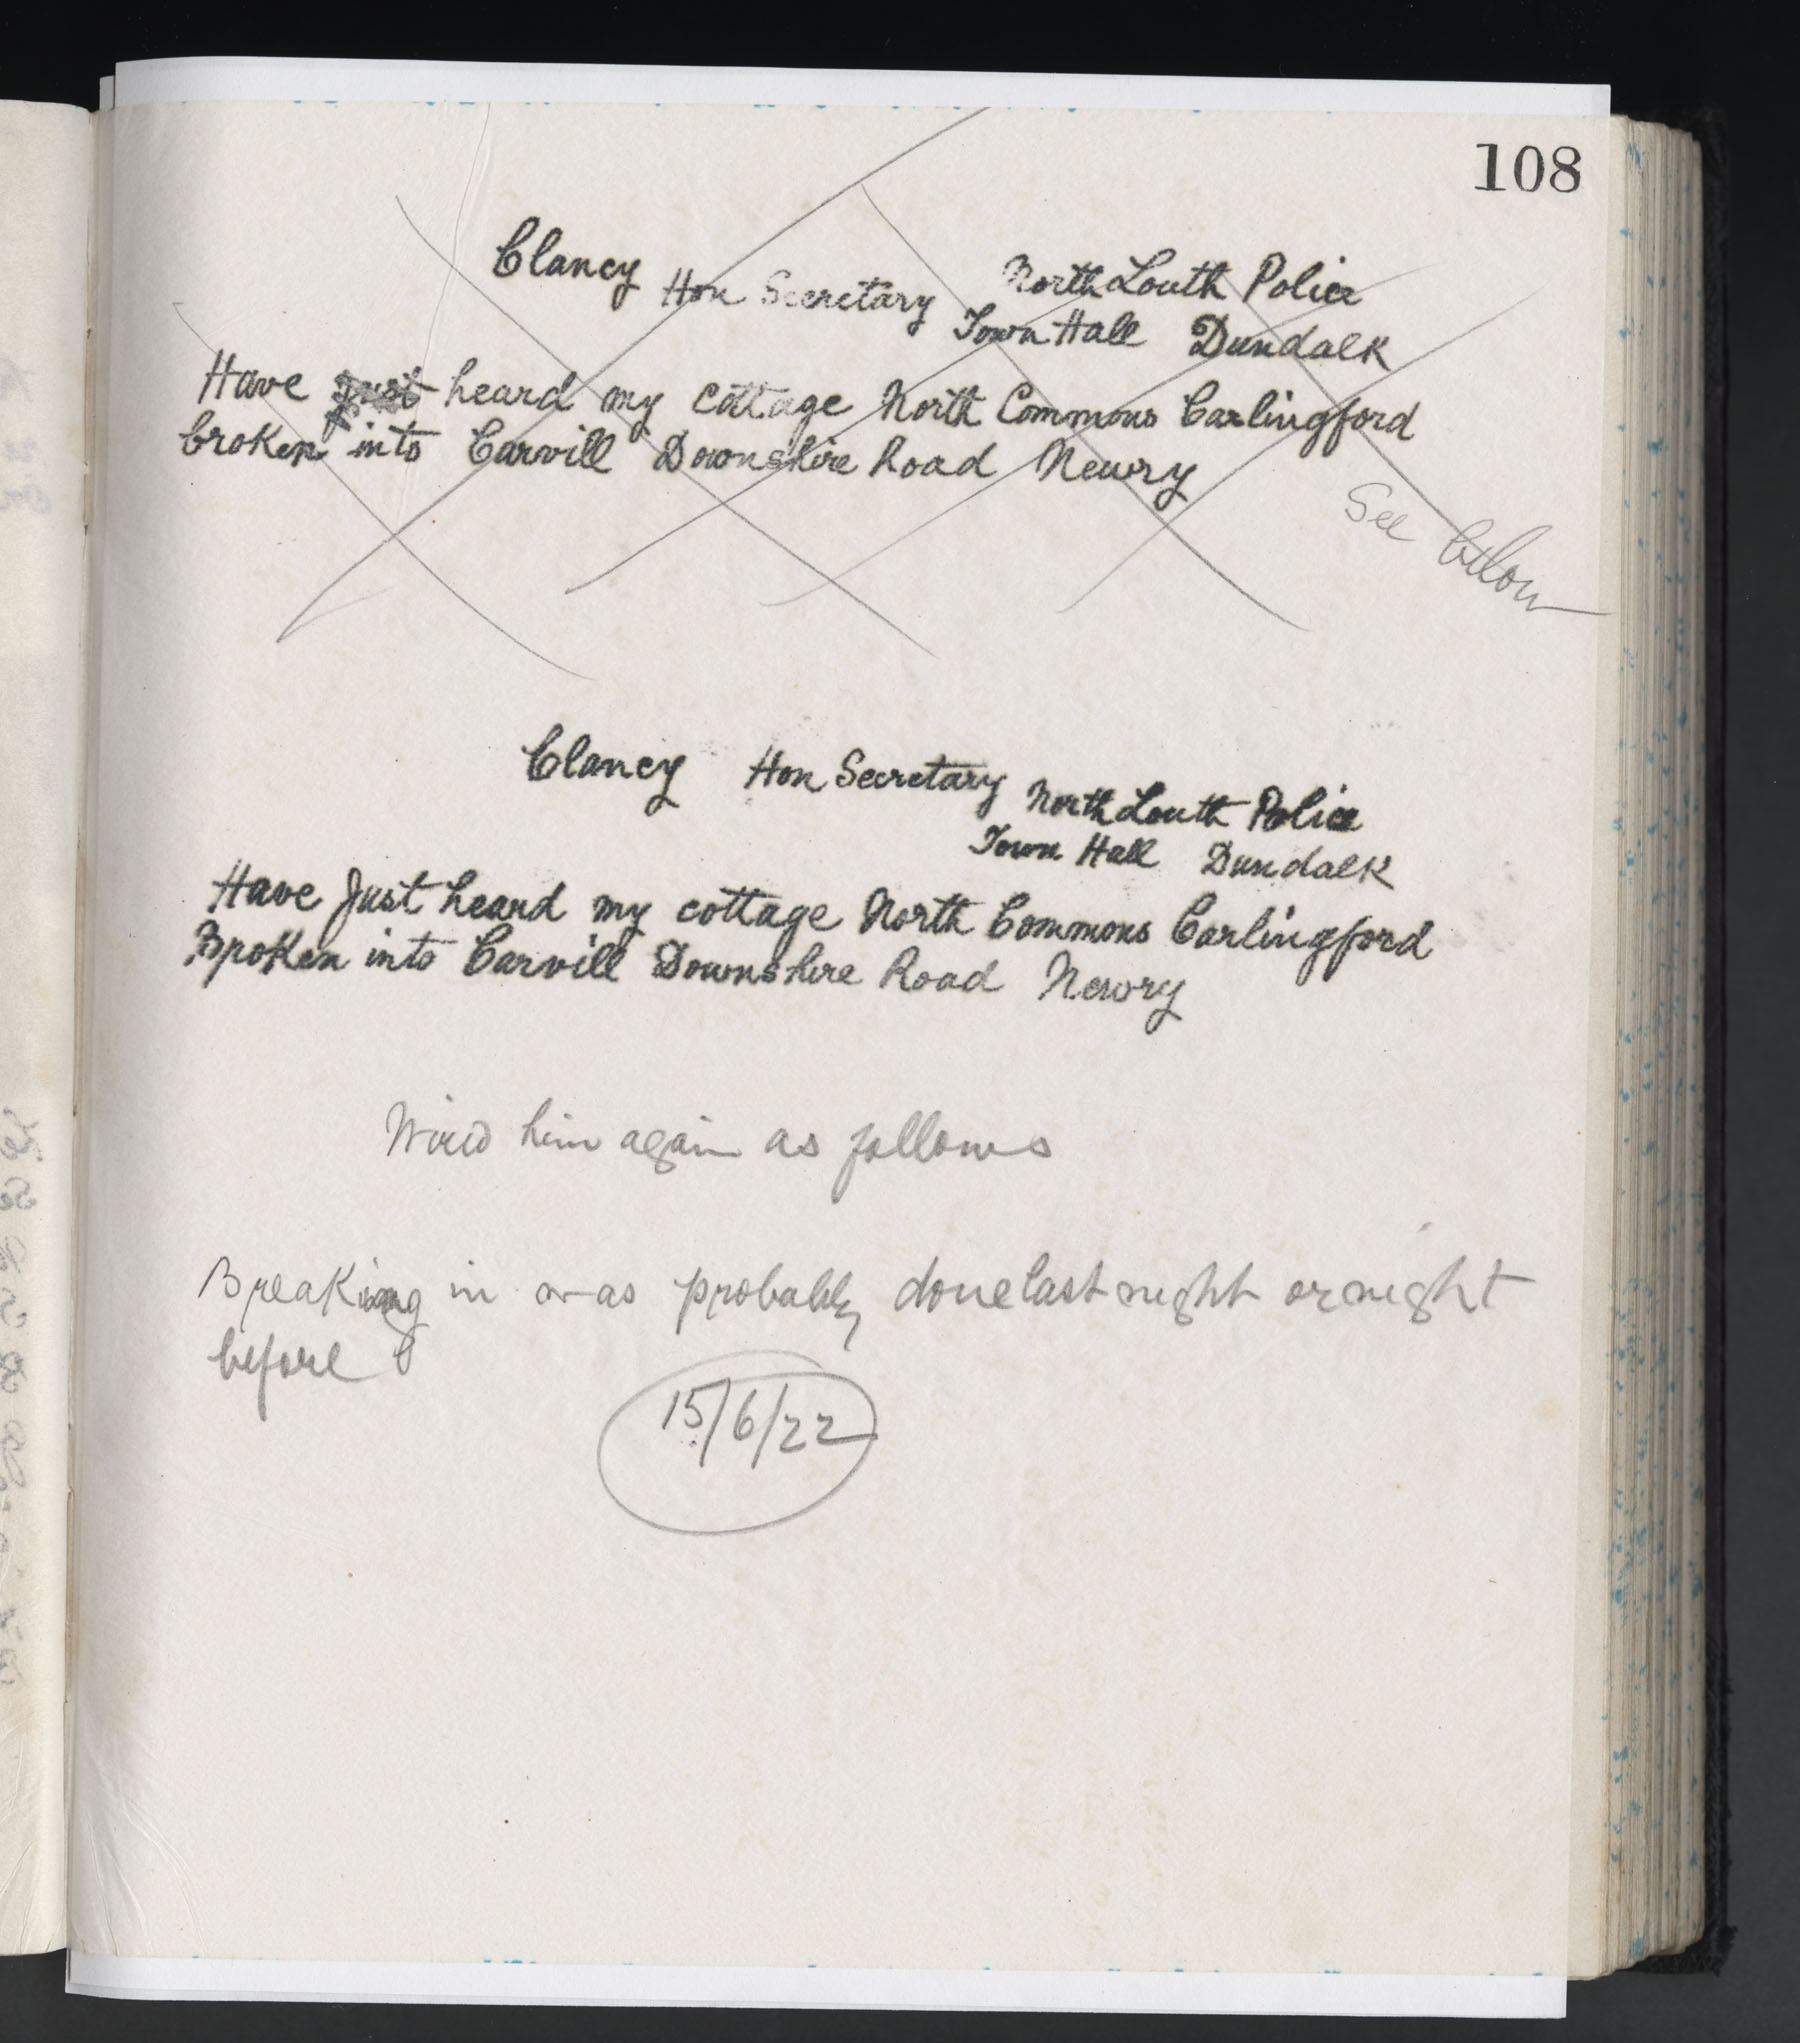 108
Clancy Hon Secretary North Louth Police
Town Hall Dundalk
Have just heard my cottage North Commons Carlingford
broken into Carvill Downshire Road Newry
See below
Clancy Hon Secretary North Louth Police
Town Hall Dundalk
Have Just heard my cottage North Commons Carlingford
Broken into Carvill Downshire Road Newry
Wired him again as follows
Breaking in was probably done last night or night
before
15/6/22